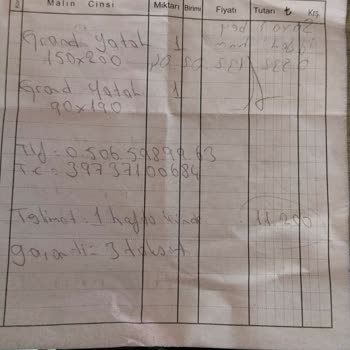 Malın Cinsi Miktarı Birimi Fiyatı Tutarı ₺ Krş.
Grand Yatak 1
150x200
Grand Yatak 1
90x190
Tlf = 0.506.59899.63
Tc = 39737100684
Teslimat = 1 hafta 11.200
garanti = 3 taksit